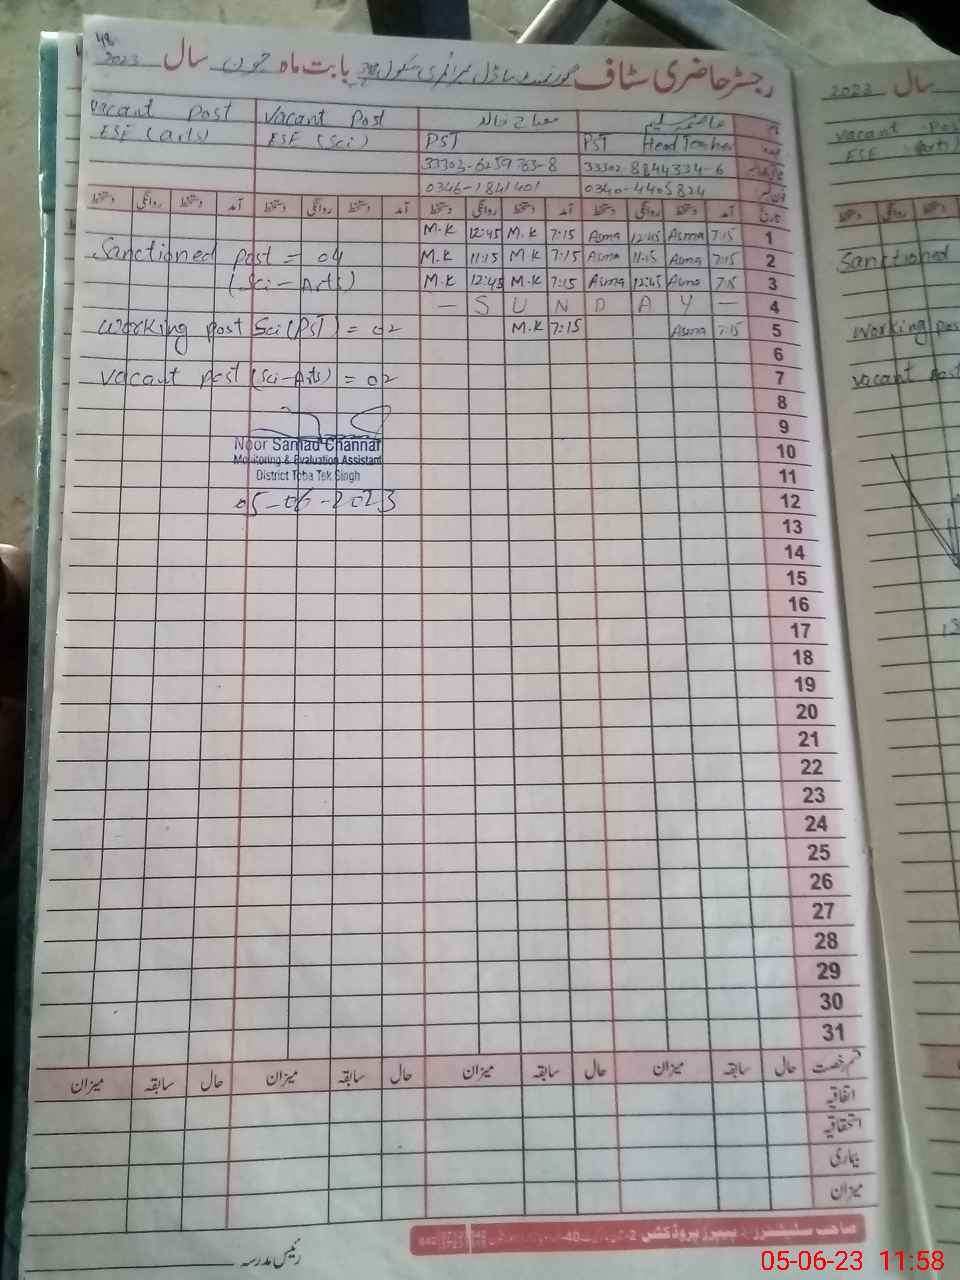 48
رجسٹر حاضری سٹاف گورنمنٹ ماڈل پرائمری سکول بابت ماہ جون سال 2023
نام عاصمہ سلیم مصباح خالد Vacant Post Vacant Post
PST Head Teacher PST ESE (Sci) ESE (arts)
33302-8844334-6 33303-6259763-8
0340-4405824 0346-1841401
تاریخ آمد دستخط روانگی دستخط آمد دستخط روانگی دستخط آمد دستخط روانگی دستخط آمد دستخط روانگی دستخط
M.K 12:45 M.K 7:15 Asma 12:45 Asma 7:15 1
Sanctioned post = 04 M.K 11:15 M.K 7:15 Asma 11:15 Asma 7:15 2
(Sci - Arts) M.K 12:45 M.K 7:15 Asma 12:45 Asma 7:15 3
— S U N D A Y — 4
Working post Sci (PST) = 02 M.K 7:15 Asma 7:15 5
6
Vacant post (Sci-Arts) = 02 7
8
9
Noor Samad Channar 10
Monitoring & Evaluation Assistant
District Toba Tek Singh 11
05-06-2023 12
13
14
15
16
17
18
19
20
21
22
23
24
25
26
27
28
29
30
31
قسم رخصت حال سابقہ میزان حال سابقہ میزان حال سابقہ میزان حال سابقہ میزان
اتفاقیہ
استحقاقیہ
بیماری
میزان
صاحب سٹیشنرز اینڈ پیپرز پروڈکشن
رئیس مدرسہ
2023 سال
Vacant Post
ESE (arts)
Sanctioned
Working pos
vacant post
05-06-23 11:58